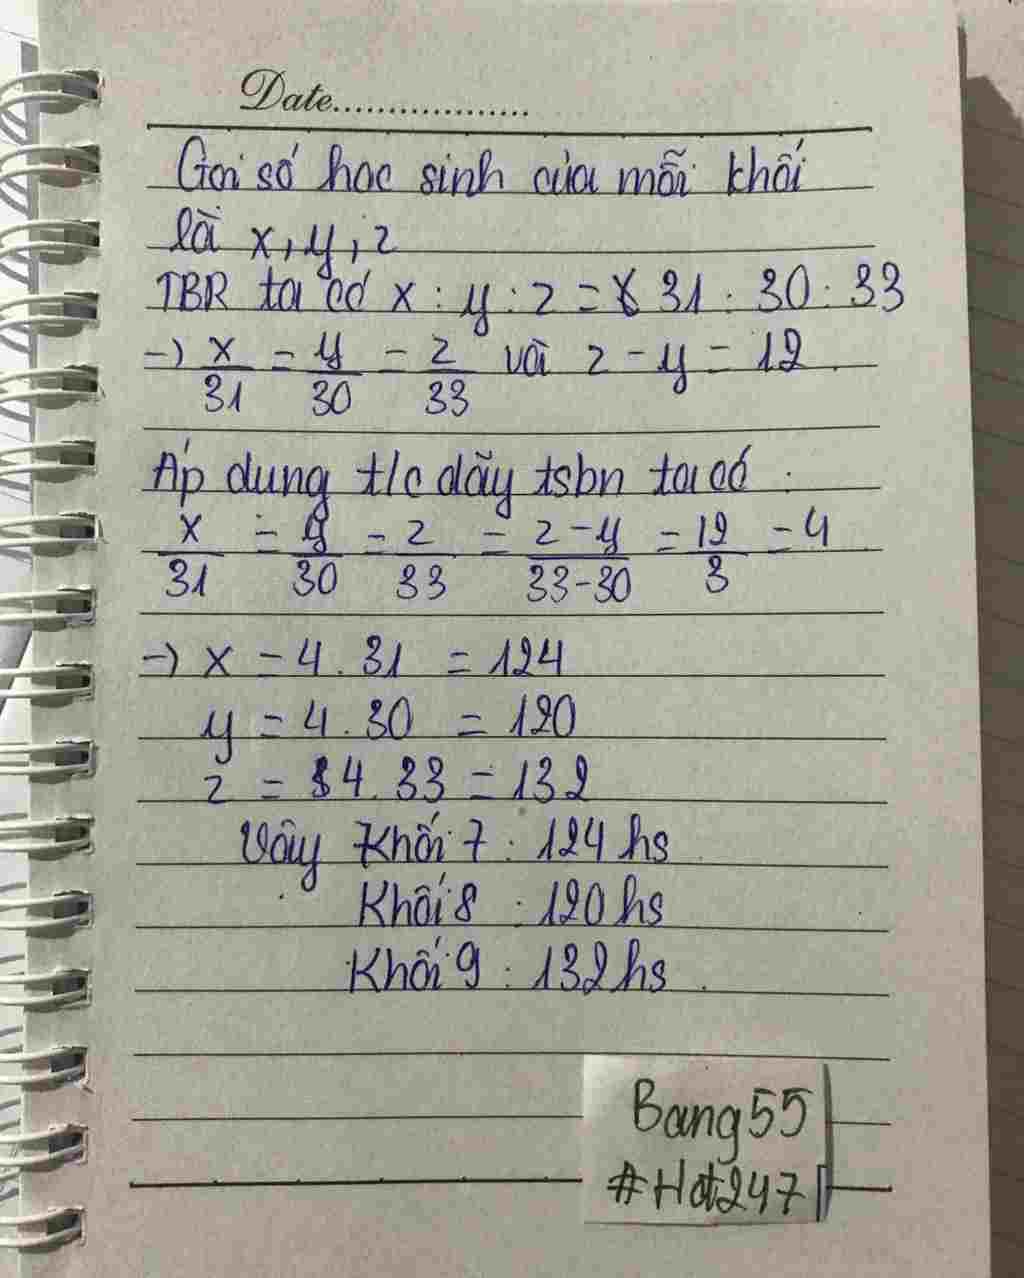 Date..................
Gọi số học sinh của mỗi khối
là x, y, z
TBR ta có x : y : z = 31 : 30 : 33
→ x/31 = y/30 = z/33 và z - y = 12.
Áp dụng t/c dãy tsbn ta có :
x/31 = y/30 = z/33 = z - y/33 - 30 = 12/3 = 4
→ x = 4 . 31 = 124
y = 4 . 30 = 120
z = 4 . 33 = 132
Vậy Khối 7 : 124 hs
Khối 8 : 120 hs
Khối 9 : 132 hs.
Bang55
#Hot247